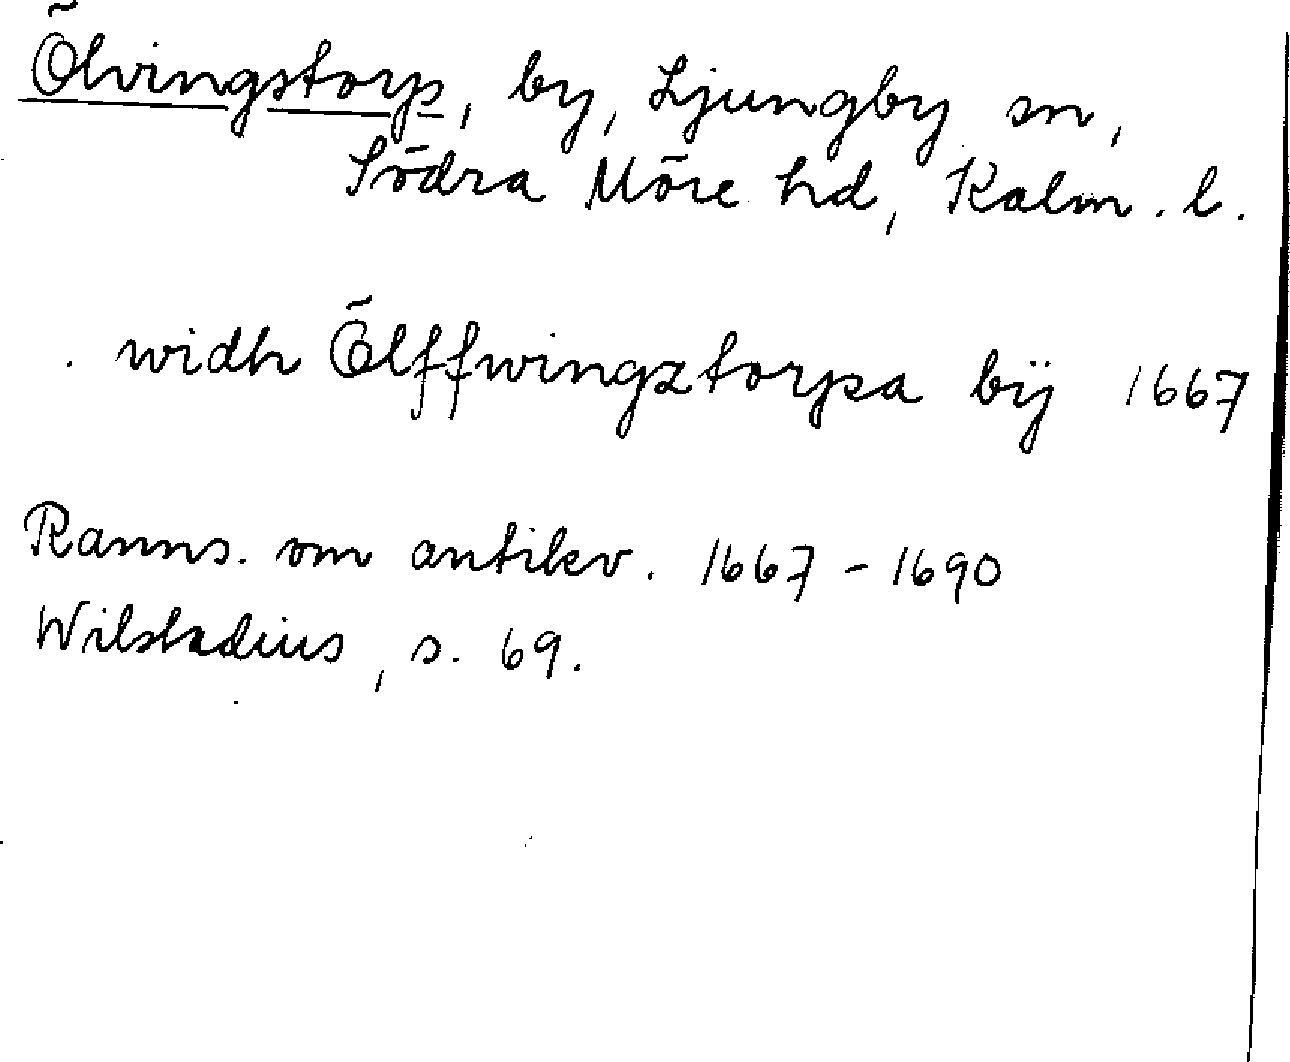 Ölvingstorp, by, Ljungby sn,
Södra Möre hd, Kalm. l.
widh Ölffwingztorpa bÿ 1667
Ranns. om antikv. 1667-1690
Wilstadius, s. 69.